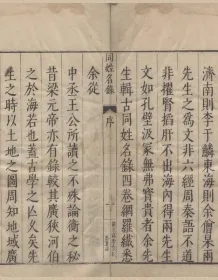 濟南則李于鱗東海則余僧杲兩
先生之為文非六經周秦語不道
非擢腎掐肝不出海內得兩伯
文如孔壁汲冢無弗寶貴者余先
生輯古同姓名錄四卷網羅纖悉
同姓名錄
序
余從
中丞王公所讀之不殊論衡之秘
昔梁元帝亦有錄較其廣狹河伯
之於海若也蓋古學之亾久矣先
生之時以土地之圖周知地域廣